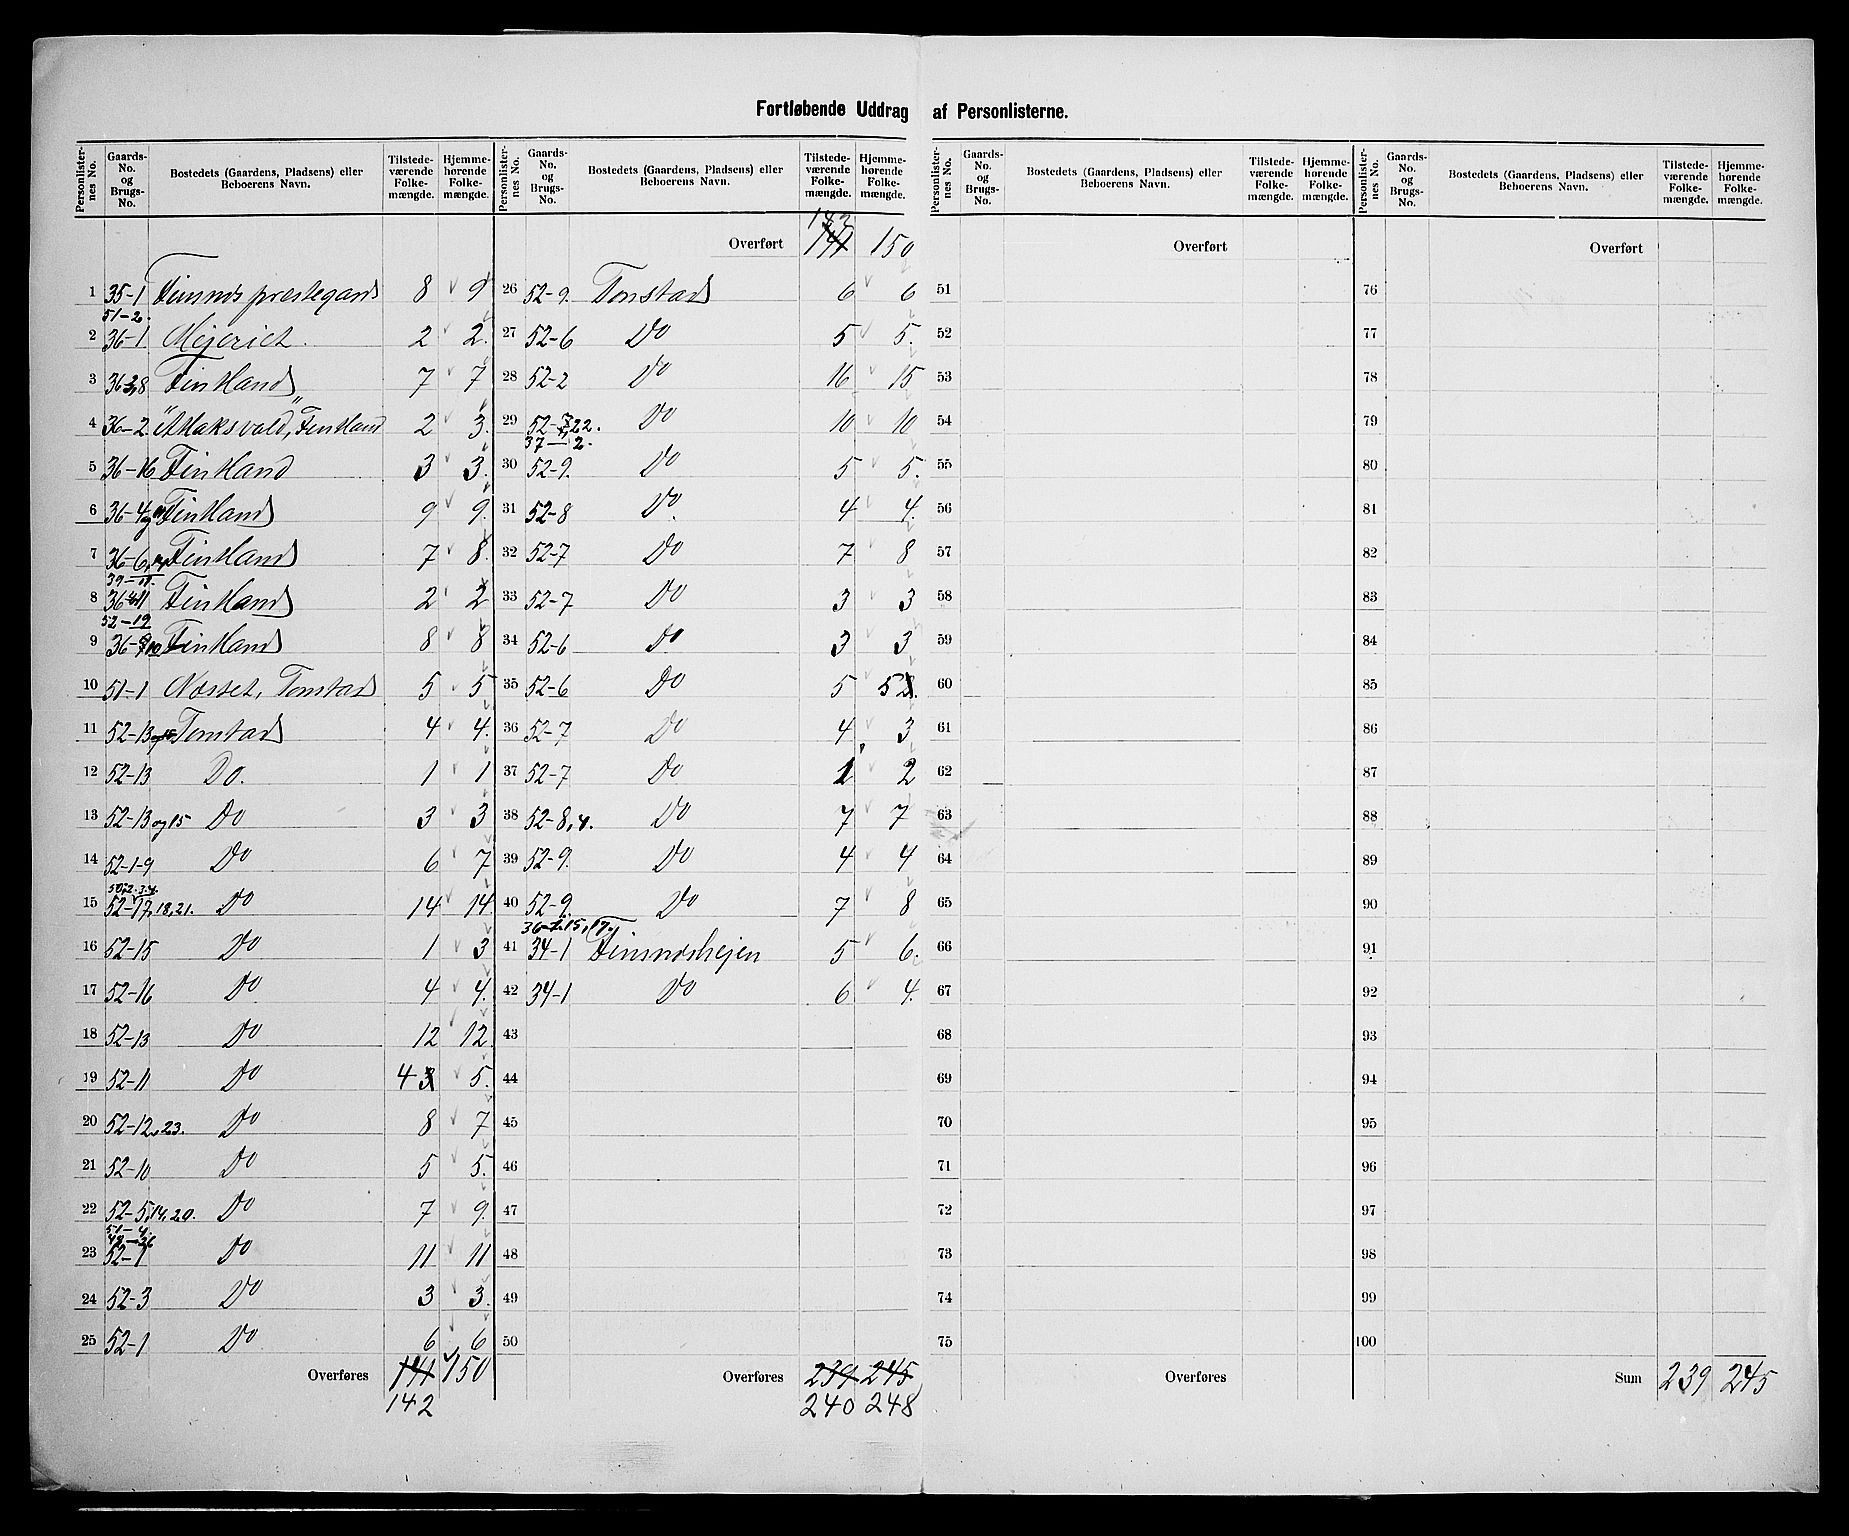 Fortløbende Uddrag af Personlisterne.
Personlisternes No. | Gaards-No. og Brugs-No. | Bostedets (Gaardens, Pladsens) eller Beboerens Navn. | Tilstedeværende Folkemængde. | Hjemmehørende Folkemængde.
1 35-1 præstegard 8 9
51-2.
2 36-1 Mejeriet. 2 2.
3 36 3,8 Finkland 7 7
4 36-2 Finkland 2 3.
5 36-16 Finkland 3 3.
6 36-4 Finkland 9 9.
7 36-6, Finkland 7 8.
39-11.
8 36 Finkland 2 2
52-19
9 36- Finkland 8 8
10 51-1 Næsset, Tonstad 5 5
11 52-13 Tonstad 4 4.
12 52-13 Do. 1 1
13 52-13 og 15 Do 3 3
14 52-1-9 Do 6 7
50,2.3.4.
15 52-17, 18, 21. Do 14 14
16 52-15 Do 1 3
17 52-16 Do 4 4.
18 52-13 Do 12 12.
19 52-11 Do 4 3 5.
20 52-12, 23. Do 8 7
21 52-10 Do 5 5.
22 52-5, 14, 20. Do 7 9.
51-4.
23 52-1 Do 11 11
24 52-3 Do 3 3.
25 52-1 Do 6 6
Overføres 141 150
142
Personlisternes No. | Gaards-No. og Brugs-No. | Bostedets (Gaardens, Pladsens) eller Beboerens Navn. | Tilstedeværende Folkemængde. | Hjemmehørende Folkemængde.
142
Overført 141 150
26 52-9. Tonstad 6 6
27 52-6 Do 5 5.
28 52-2 Do 16 15
29 52-7, 22. Do 10 10
37-2.
30 52-9. Do 5 5.
31 52-8 Do. 4 4.
32 52-7 Do 7 8
33 52-7 Do 3 3
34 52-6 Do 3 3
35 52-6 Do 5 5
36 52-7 Do 4 3
37 52-7 Do 1 2
38 52-8, 4. Do 7 7
39 52-9. Do 4 4
40 52-9. Do 7 8
36- 15, 17.
41 34-1 Finsnesheien 5 6.
42 34-1 Do 6 4.
43
44
45
46
47
48
49
50
Overføres 239 245
240 248
Personlisternes No. | Gaards-No. og Brugs-No. | Bostedets (Gaardens, Pladsens) eller Beboerens Navn. | Tilstedeværende Folkemængde. | Hjemmehørende Folkemængde.
Overført
51
52
53
54
55
56
57
58
59
60
61
62
63
64
65
66
67
68
69
70
71
72
73
74
75
Overføres
Personlisternes No. | Gaards-No. og Brugs-No. | Bostedets (Gaardens, Pladsens) eller Beboerens Navn. | Tilstedeværende Folkemængde. | Hjemmehørende Folkemængde.
Overført
76
77
78
79
80
81
82
83
84
85
86
87
88
89
90
91
92
93
94
95
96
97
98
99
100
Sum 239 245